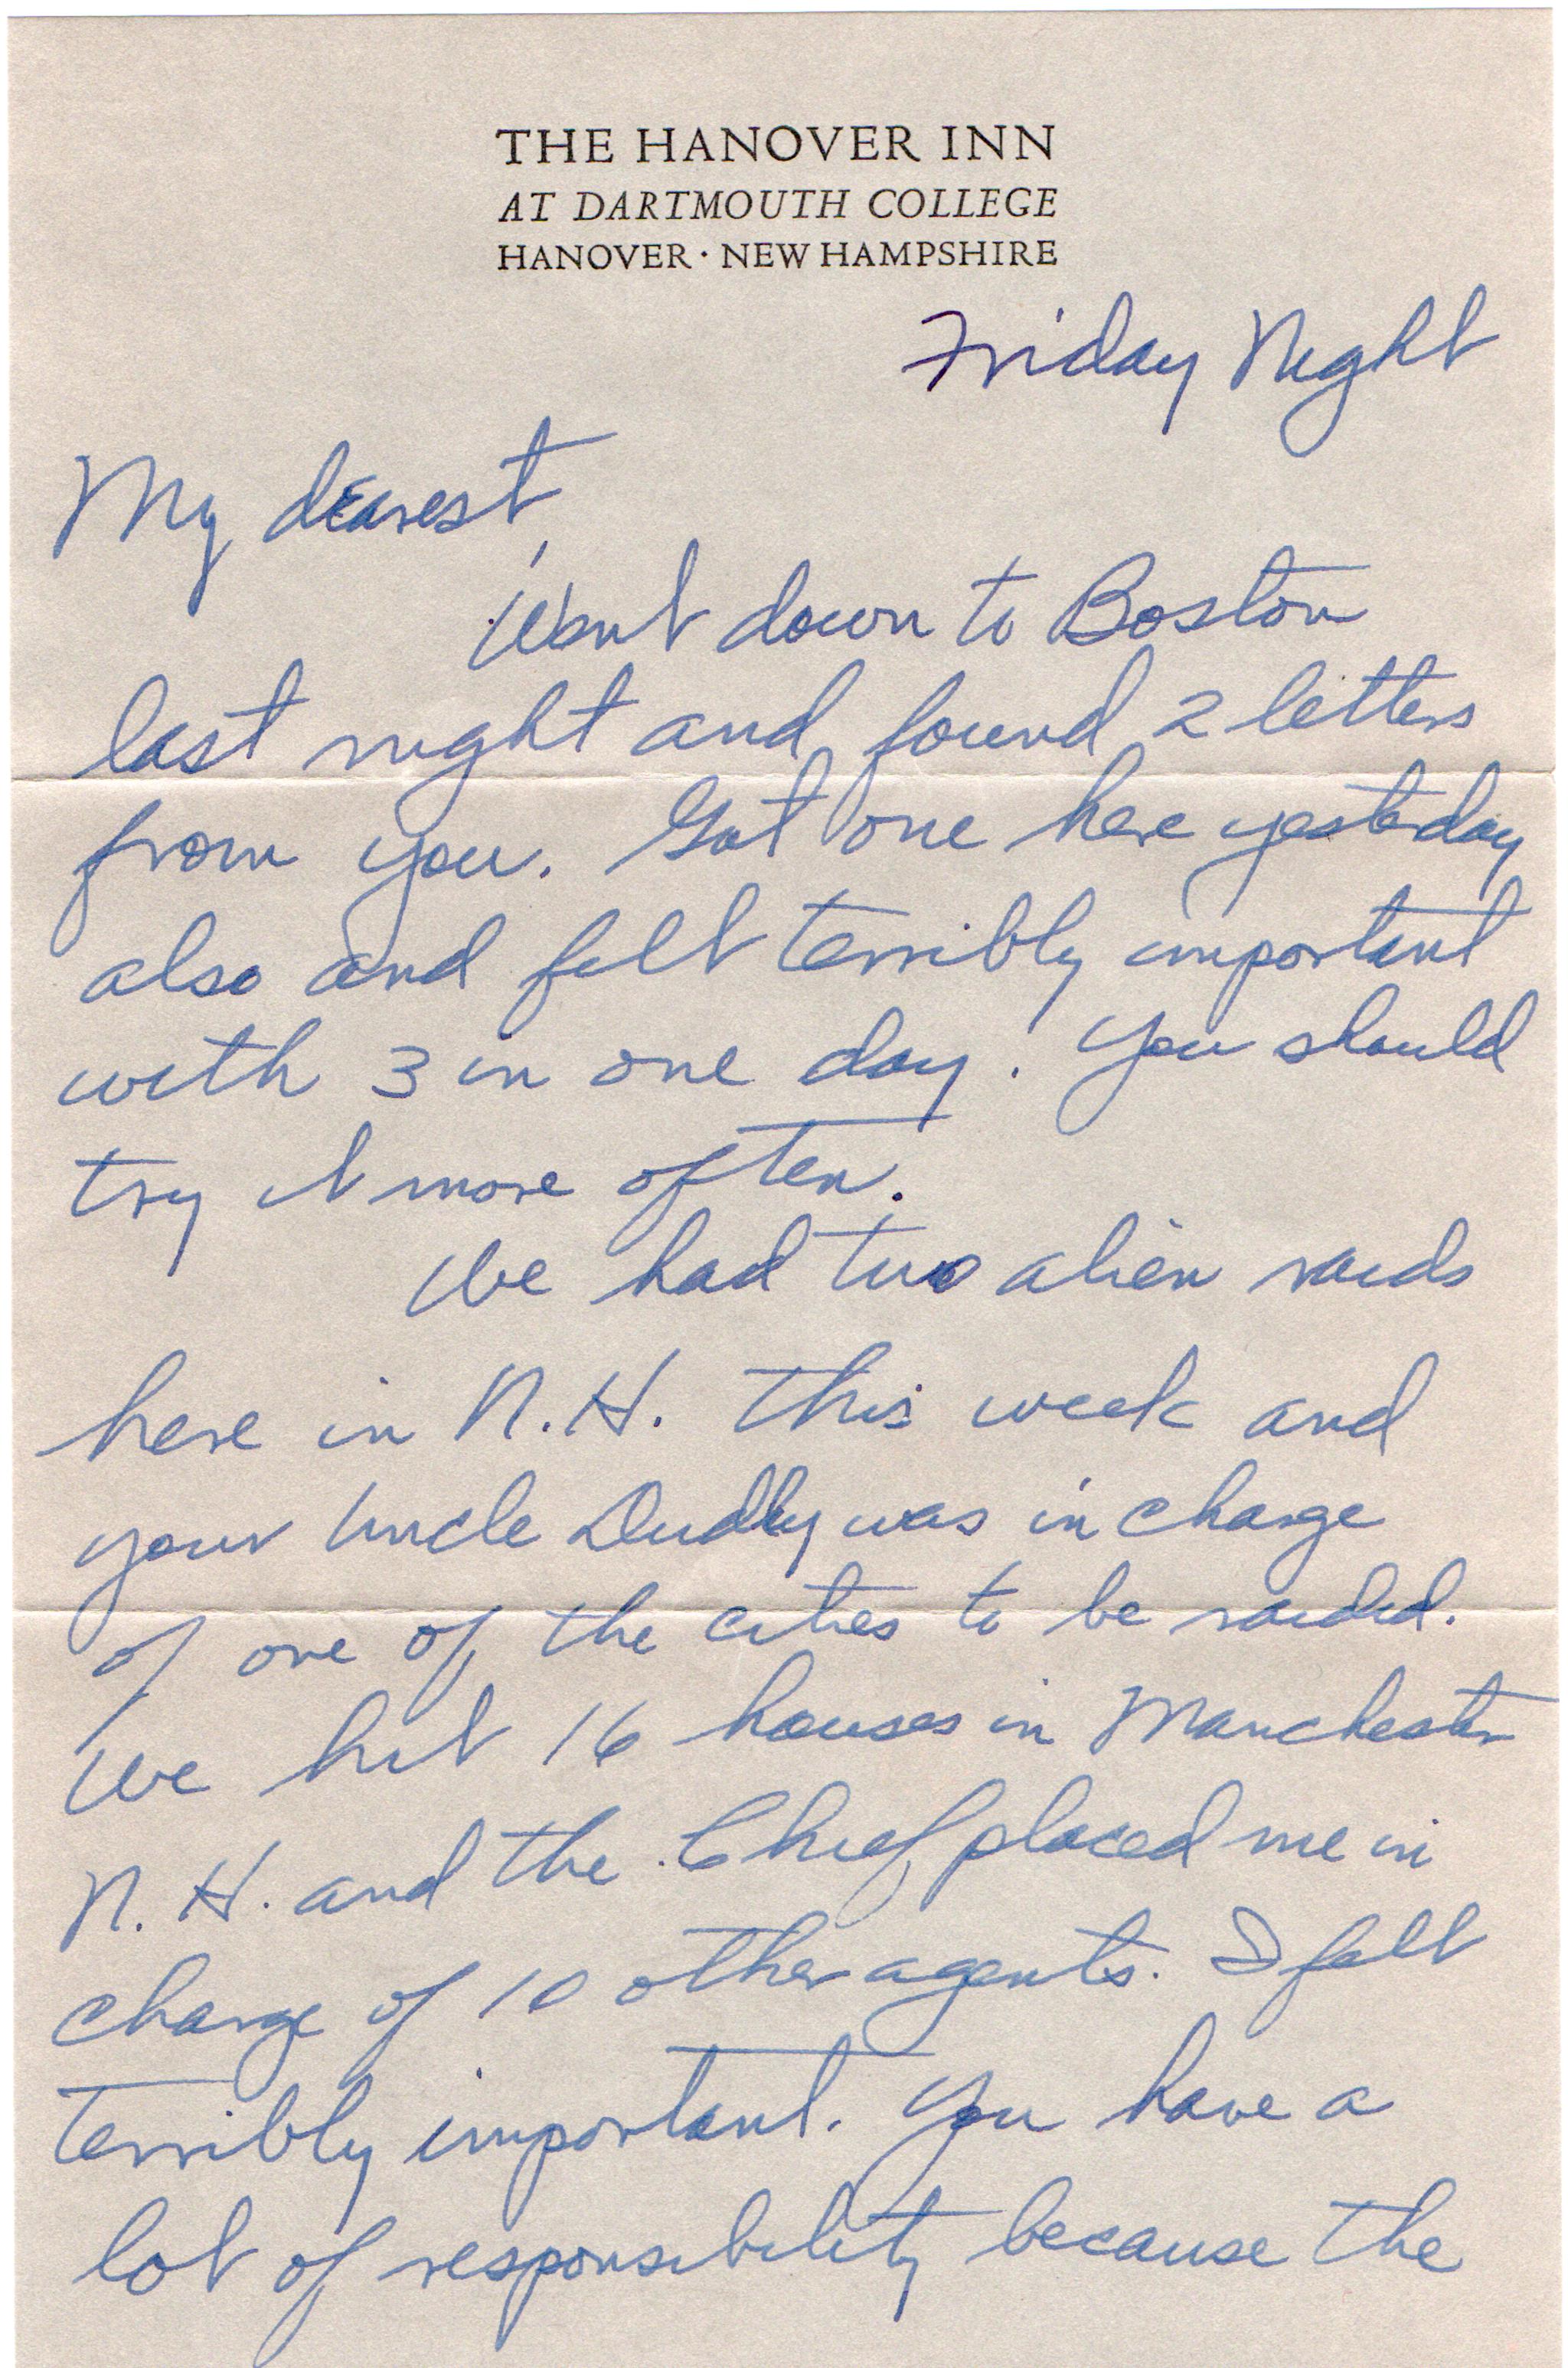 THE HANOVER INN
AT DARTMOUTH COLLEGE
HANOVER · NEW HAMPSHIRE
Friday Night
My dearest,
Went down to Boston
last night and found 2 letters
from you. Got one here yesterday
also and felt terribly important
with 3 in one day! You should
try it more often.
We had two alien raids
here in N.H. this week and
your Uncle Dudley was in charge
of one of the cities to be raided.
We hit 16 houses in Manchester
N.H. and the Chief placed me in
charge of 10 other agents. I felt
terribly important. You have a
lot of responsibility because the